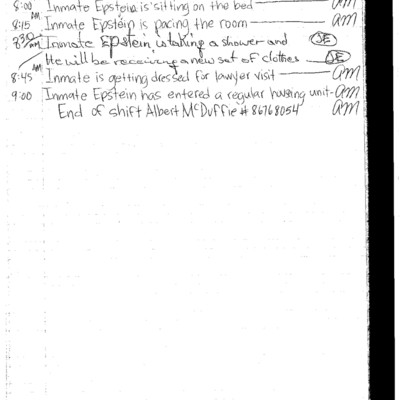 8:00 Inmate Epstein is sitting on the bed am
8:15 AM Inmate Epstein is pacing the room am
8:30 AM Inmate Epstein is taking a shower and JE
He will be receiving a new set of clothes JE
8:45 AM Inmate is getting dressed for lawyer visit am
9:00 Inmate Epstein has entered a regular housing unit am
End of shift Albert McDuffie # 86768054 am